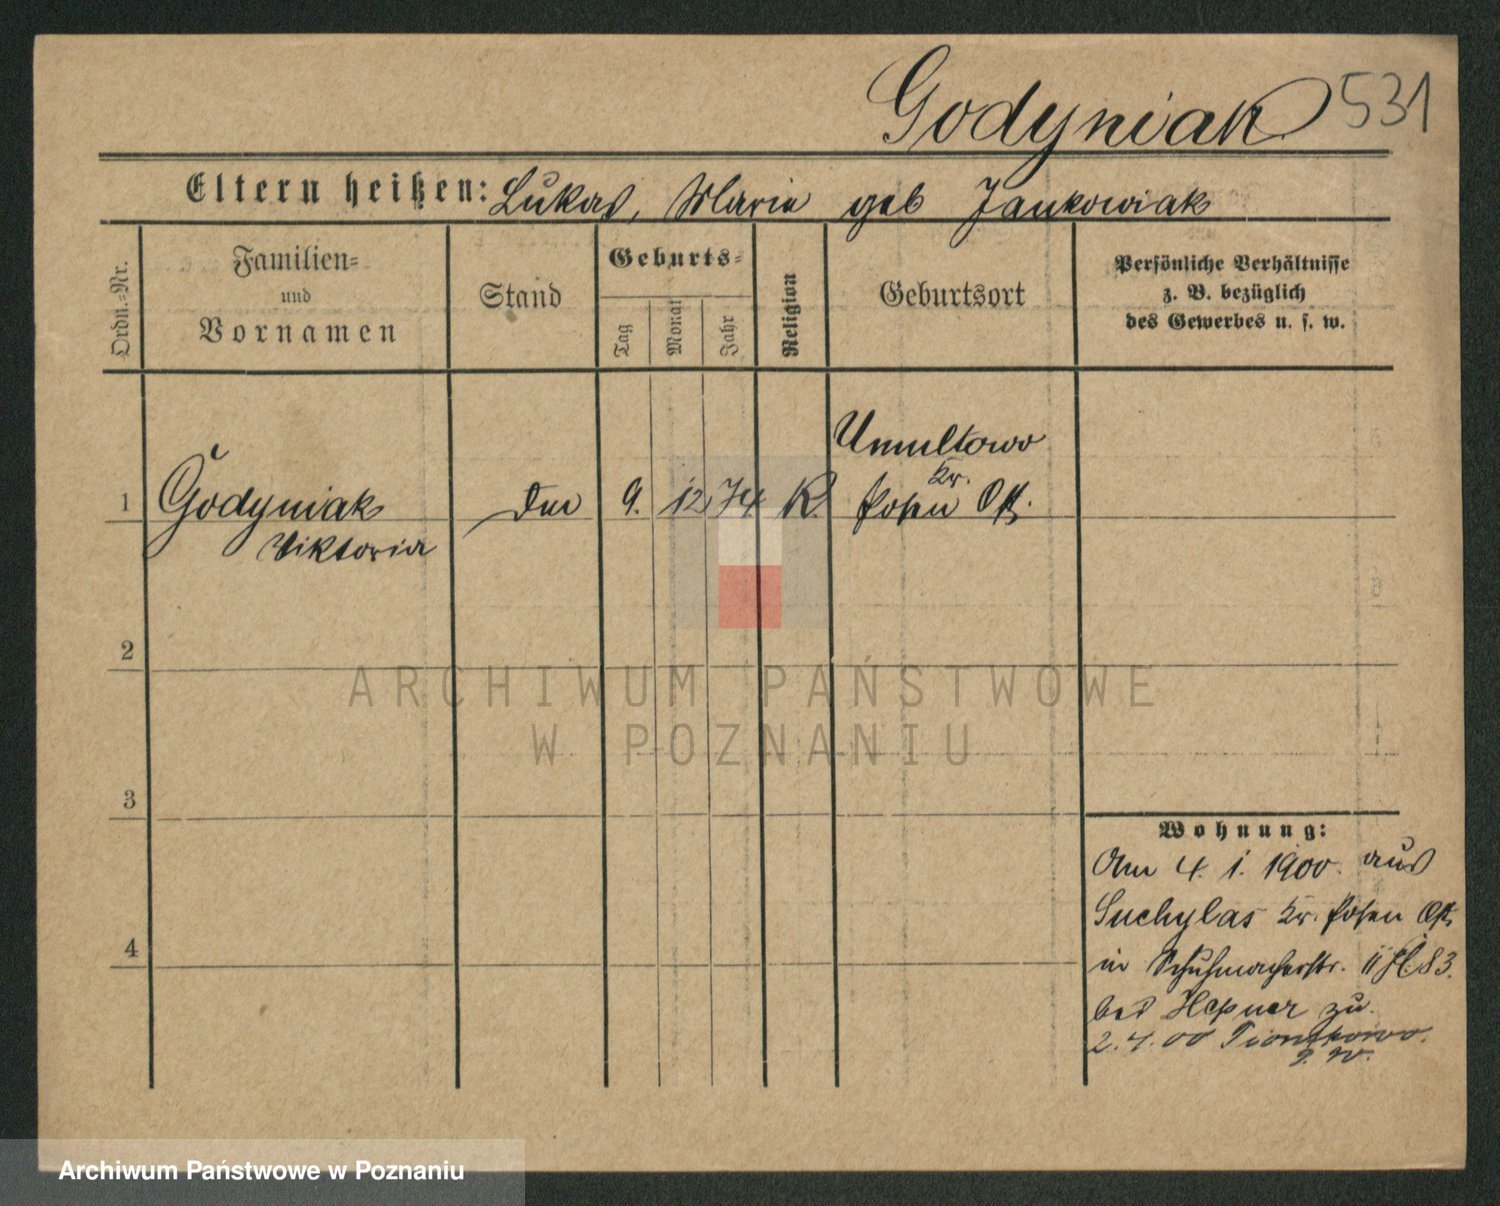 Godyniak 531
Eltern heißen: Lukas, Maria geb Jankowiak
Ordn.=Nr.
Familien=
und
Vornamen
Stand
Geburts=
Tag
Monat
Jahr
Religion
Geburtsort
Persönliche Verhältnisse
z. B. bezüglich
des Gewerbes u. s. w.
1 Godyniak 9. 12 74 K.
Viktoria
Umultowo
Kr.
Posen Ost.
2
3
4
Wohnung:
Am 4. 1. 1900. aus
Suchylas Kr. Posen Ost
in Schuhmacherstr. 11
bei Hepner zu.
2. 4. 00 Piontkowo.
ARCHIWUM PAŃSTWOWE
W POZNANIU
Archiwum Państwowe w Poznaniu